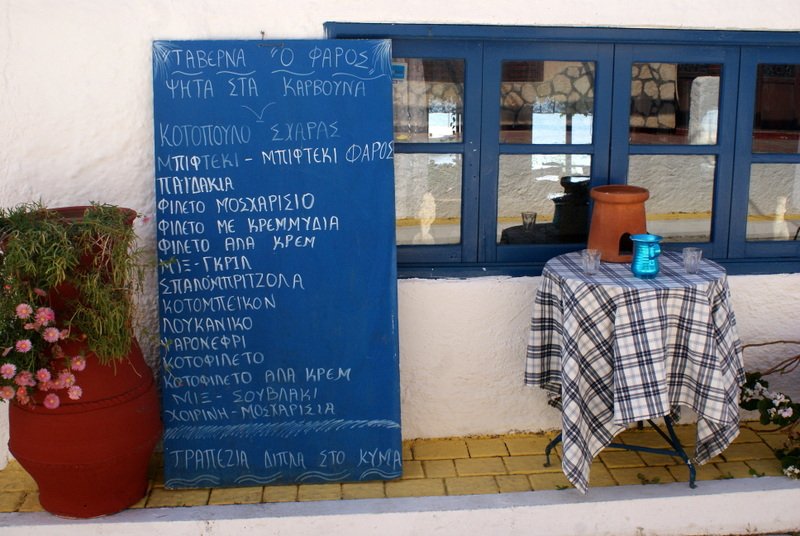 ΤΑΒΕΡΝΑ "Ο ΦΑΡΟΣ"
ΨΗΤΑ ΣΤΑ ΚΑΡΒΟΥΝΑ
ΚΟΤΟΠΟΥΛΟ ΣΧΑΡΑΣ
ΜΠΙΦΤΕΚΙ - ΜΠΙΦΤΕΚΙ ΦΑΡΟΣ
ΠΑΪΔΑΚΙΑ
ΦΙΛΕΤΟ ΜΟΣΧΑΡΙΣΙΟ
ΦΙΛΕΤΟ ΜΕ ΚΡΕΜΜΥΔΙΑ
ΦΙΛΕΤΟ ΑΛΑ ΚΡΕΜ
ΜΙΞ-ΓΚΡΙΛ
ΣΠΑΛΟΜΠΡΙΤΖΟΛΑ
ΚΟΤΟΜΠΕΙΚΟΝ
ΛΟΥΚΑΝΙΚΟ
ΨΑΡΟΝΕΦΡΙ
ΚΟΤΟΦΙΛΕΤΟ
ΚΟΤΟΦΙΛΕΤΟ ΑΛΑ ΚΡΕΜ
ΜΙΞ- ΣΟΥΒΛΑΚΙ
ΧΟΙΡΙΝΗ-ΜΟΣΧΑΡΙΣΙΑ
ΤΡΑΠΕΖΙΑ ΔΙΠΛΑ ΣΤΟ ΚΥΜΑ